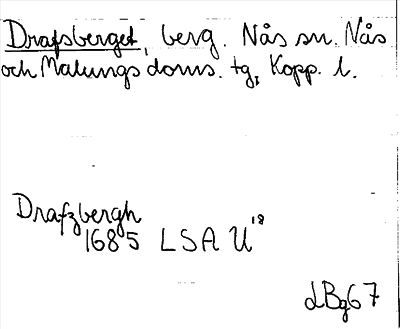 Drafsberget, berg. Nås sn. Nås
och Malungs doms. tg, Kopp. l.
Drafzbergh
1685 LSA U 18
dBg67